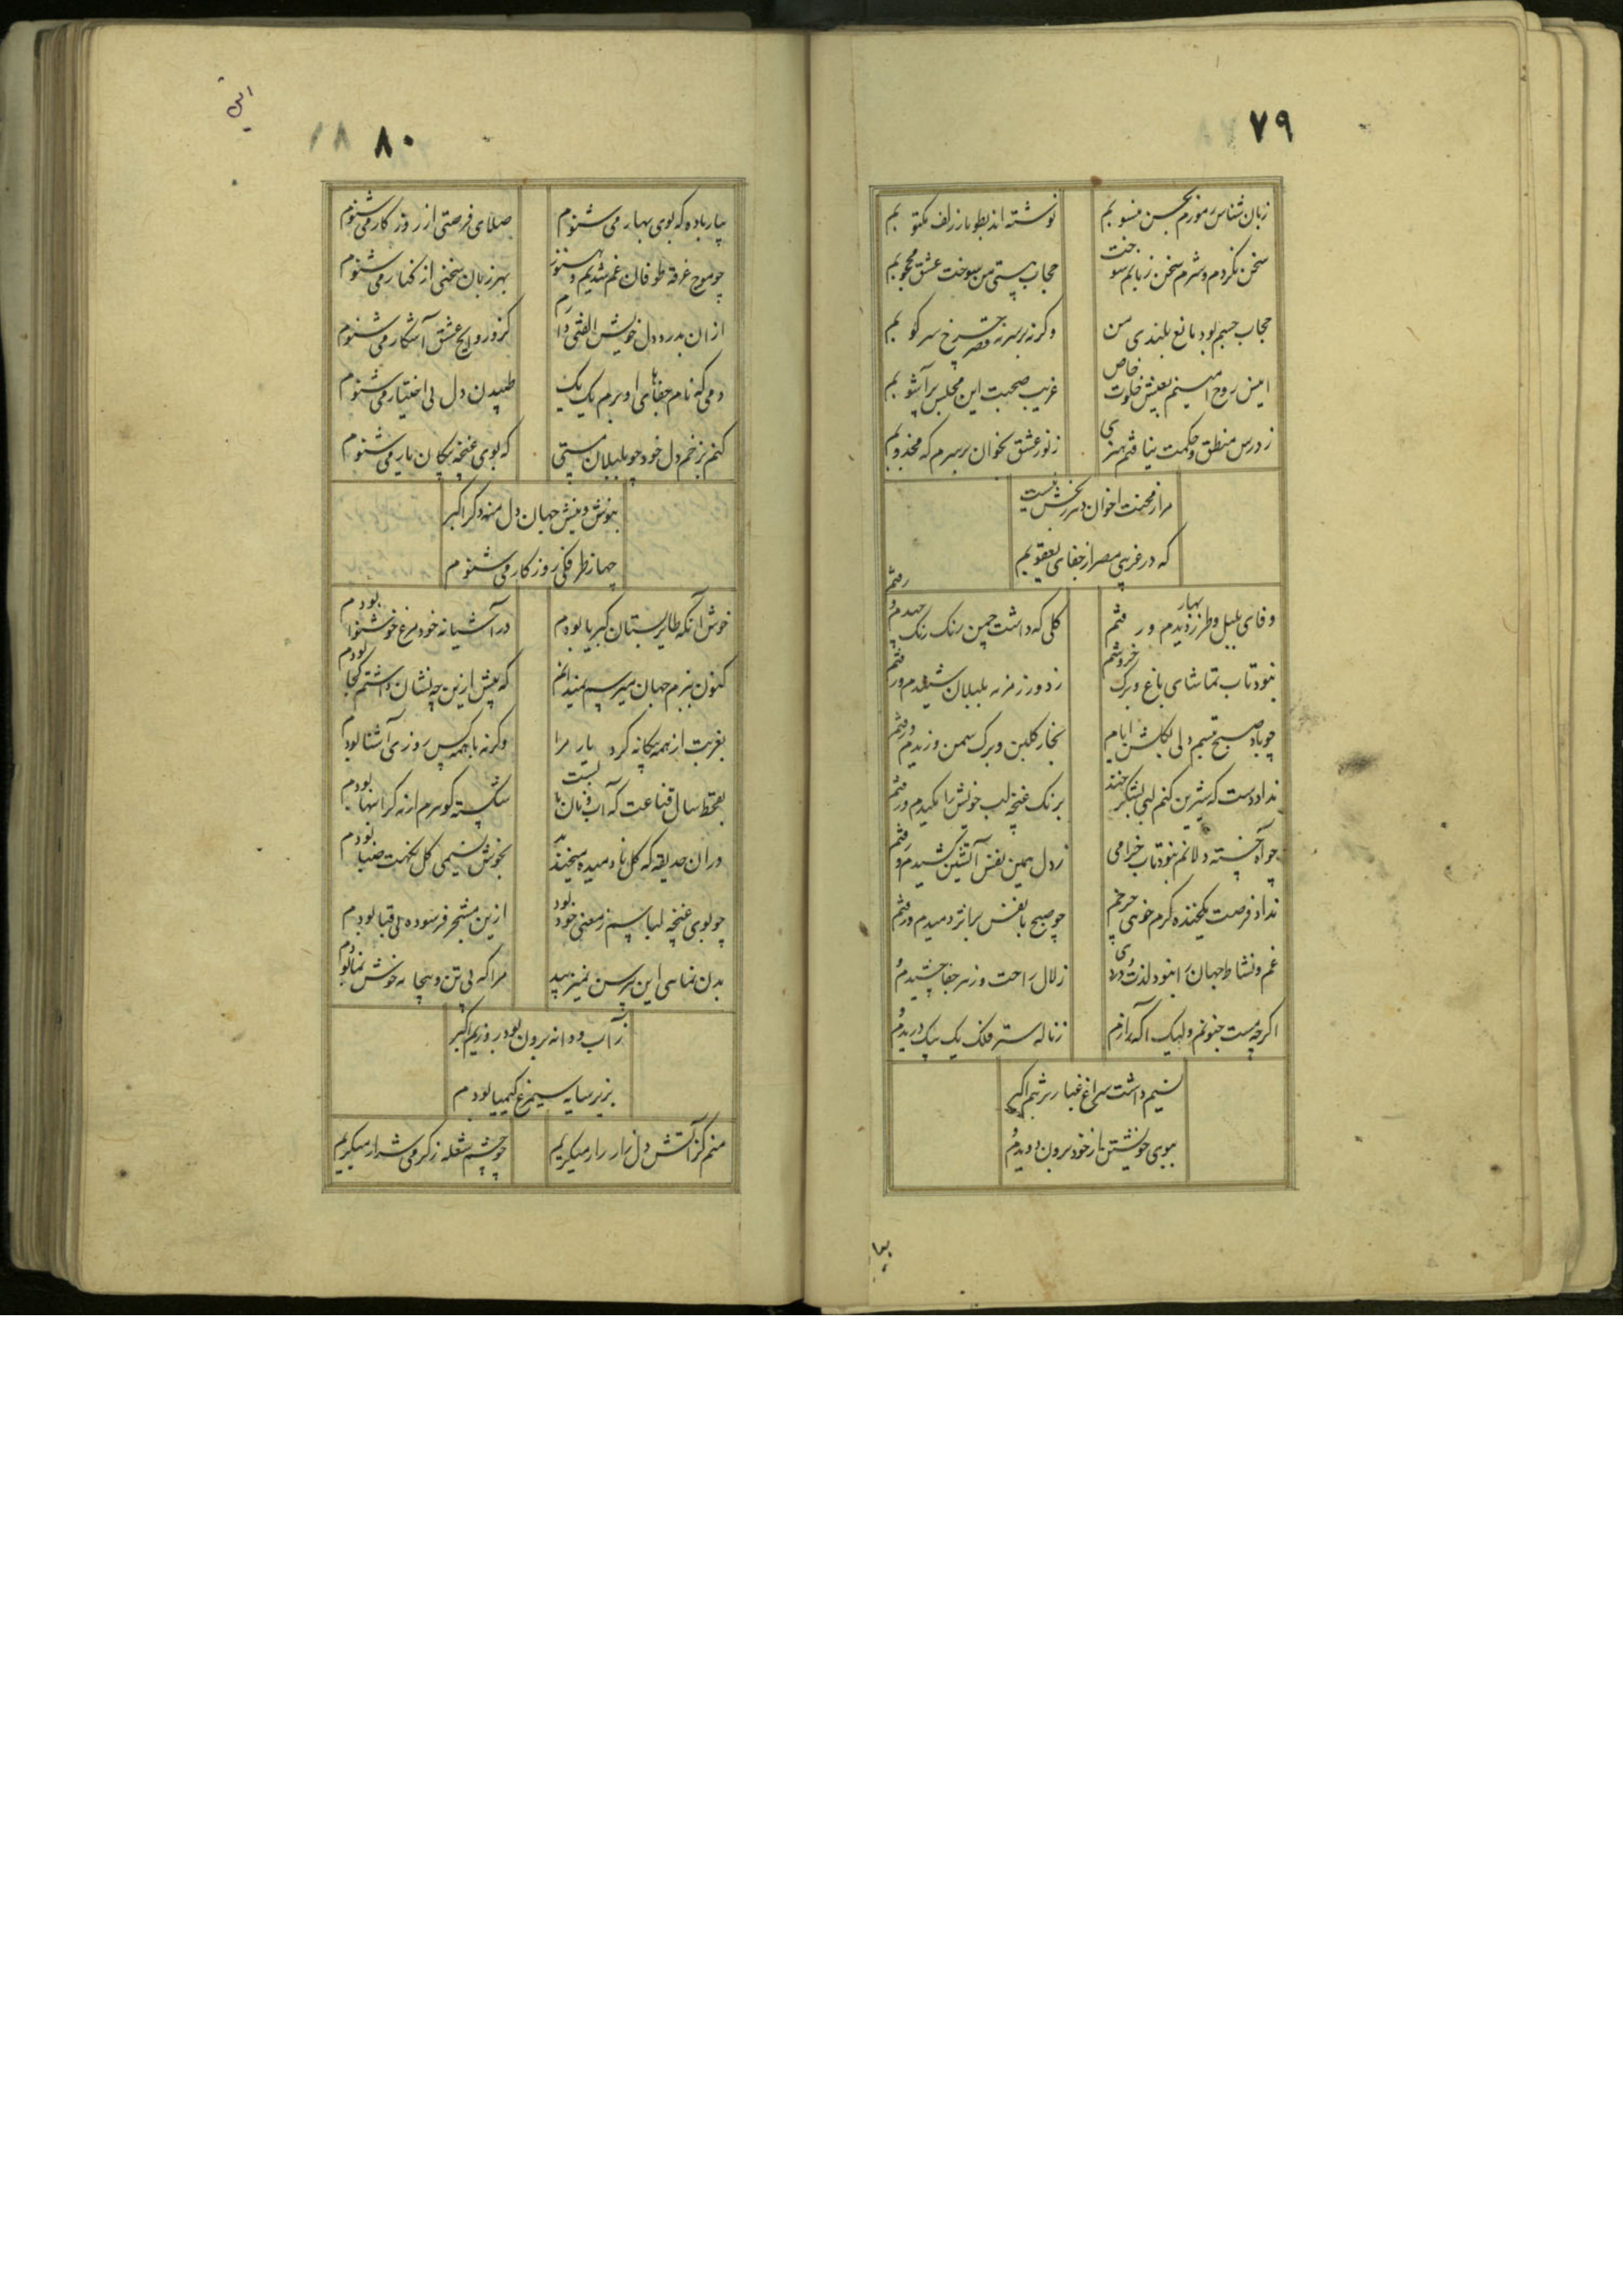 ٧٩
زبان شناس رموزم بحسن منسوبم
نوشته اند بطومار زلف مکتوبم
سخن نکردم و شرم سخن زبانم سوخت
حجاب هستی من سوخت عشق محجوبم
حجاب جسم بود مانع بلندی من
وکرنه برسر نه قصر چرخ سرکوبم
امین روح
غریب صحبت این مجلس پرآشوبم
ز درس منطق و حکمت نیافتم هنری
ز نور عشق بخوان بر سرم که مجذوبم
مرا ز محنت اخوان
که در غریبی مصر از جفای یعقوبم
وفای بلبل و طرز بهار دیدم و رفتم
کلی که داشت چمن رنک رنک چیدم و رفتم
نبود تاب تماشای باغ و برک خروشم
ز دور زمزمه بلبلان شنیدم و رفتم
چو باد صبح
بخار کلبن و برک سمن وزیدم و رفتم
نداد دست که شیرین کنم لبی بشکرخند
برنک غنچه لب خویش را مکیدم و رفتم
چو آه خسته دلانم نبود تاب خرامی
ز دل همین نفس آتشین کشیدم و رفتم
نداد فرصت یکخنده کرم خویی چرخم
چو صبح با نفس دمیدم و رفتم
غم و نشاط جهان را نبود لذت دردی
زلال راحت و زهر جفا چشیدم و
اکرچه مست جنونم ولیک آکه رازم
ز ناله ستر فلک یک بیک دریدم و
نسیم داشت سراغ غبار تربتم اکبر
ببوی خویشتن از خود برون دویدم و
بیا
٨٠
بیار باده که بوی بهار می شنوم
صلای فرصتی از روزکار می شنوم
چو موج غرقه طوفان غم شدیم و هنوز
بهر زبان سخنی از کنار می شنوم
از ان بدرد دل خویش الفتی دارم
کزو روایح عشق آشکار می شنوم
دمی که نام جفاهای او برم یک یک
طپیدن دل بی اختیار می شنوم
کنم بزخم دل خود چو بلبلان مستی
که بوی غنچه پیکان یار می شنوم
بنوش و نیش جهان دل منه دکر اکبر
چها ز طرفکی روزکار می شنوم
خوش آنکه طایر بستان کبریا بودم
در آشیانه خود مرغ خوشنوا بودم
کنون ببزم جهان میرسم نمیدانم
که پیش ازین چه نشان داشتم کجا بودم
بغربت از همه بیکانه کرد یار مرا
وکرنه با همه کس روزی آشنا بودم
بقحط سال قناعت که آب و نان بست
شکسته کوهرم ارنه کرانبها بودم
دران حدیقه که کل نادمیده میخندید
بخوش نسیمی کل نکهت صبا بودم
چو بوی غنچه لباسم ز معنی خود بود
ازین فرسوده بی قبا بودم
بدن نمایی این پیرهن نمیزیبد
مرا که بی تن و بیجامه خوش نما بودم
ز آب و دانه برون بود روزیم اکبر
بزیر سایه سیمرغ کیمیا بودم
منم کز آتش دل زار زار میکریم
چو چشم شعله ز کرمی شرار میکریم